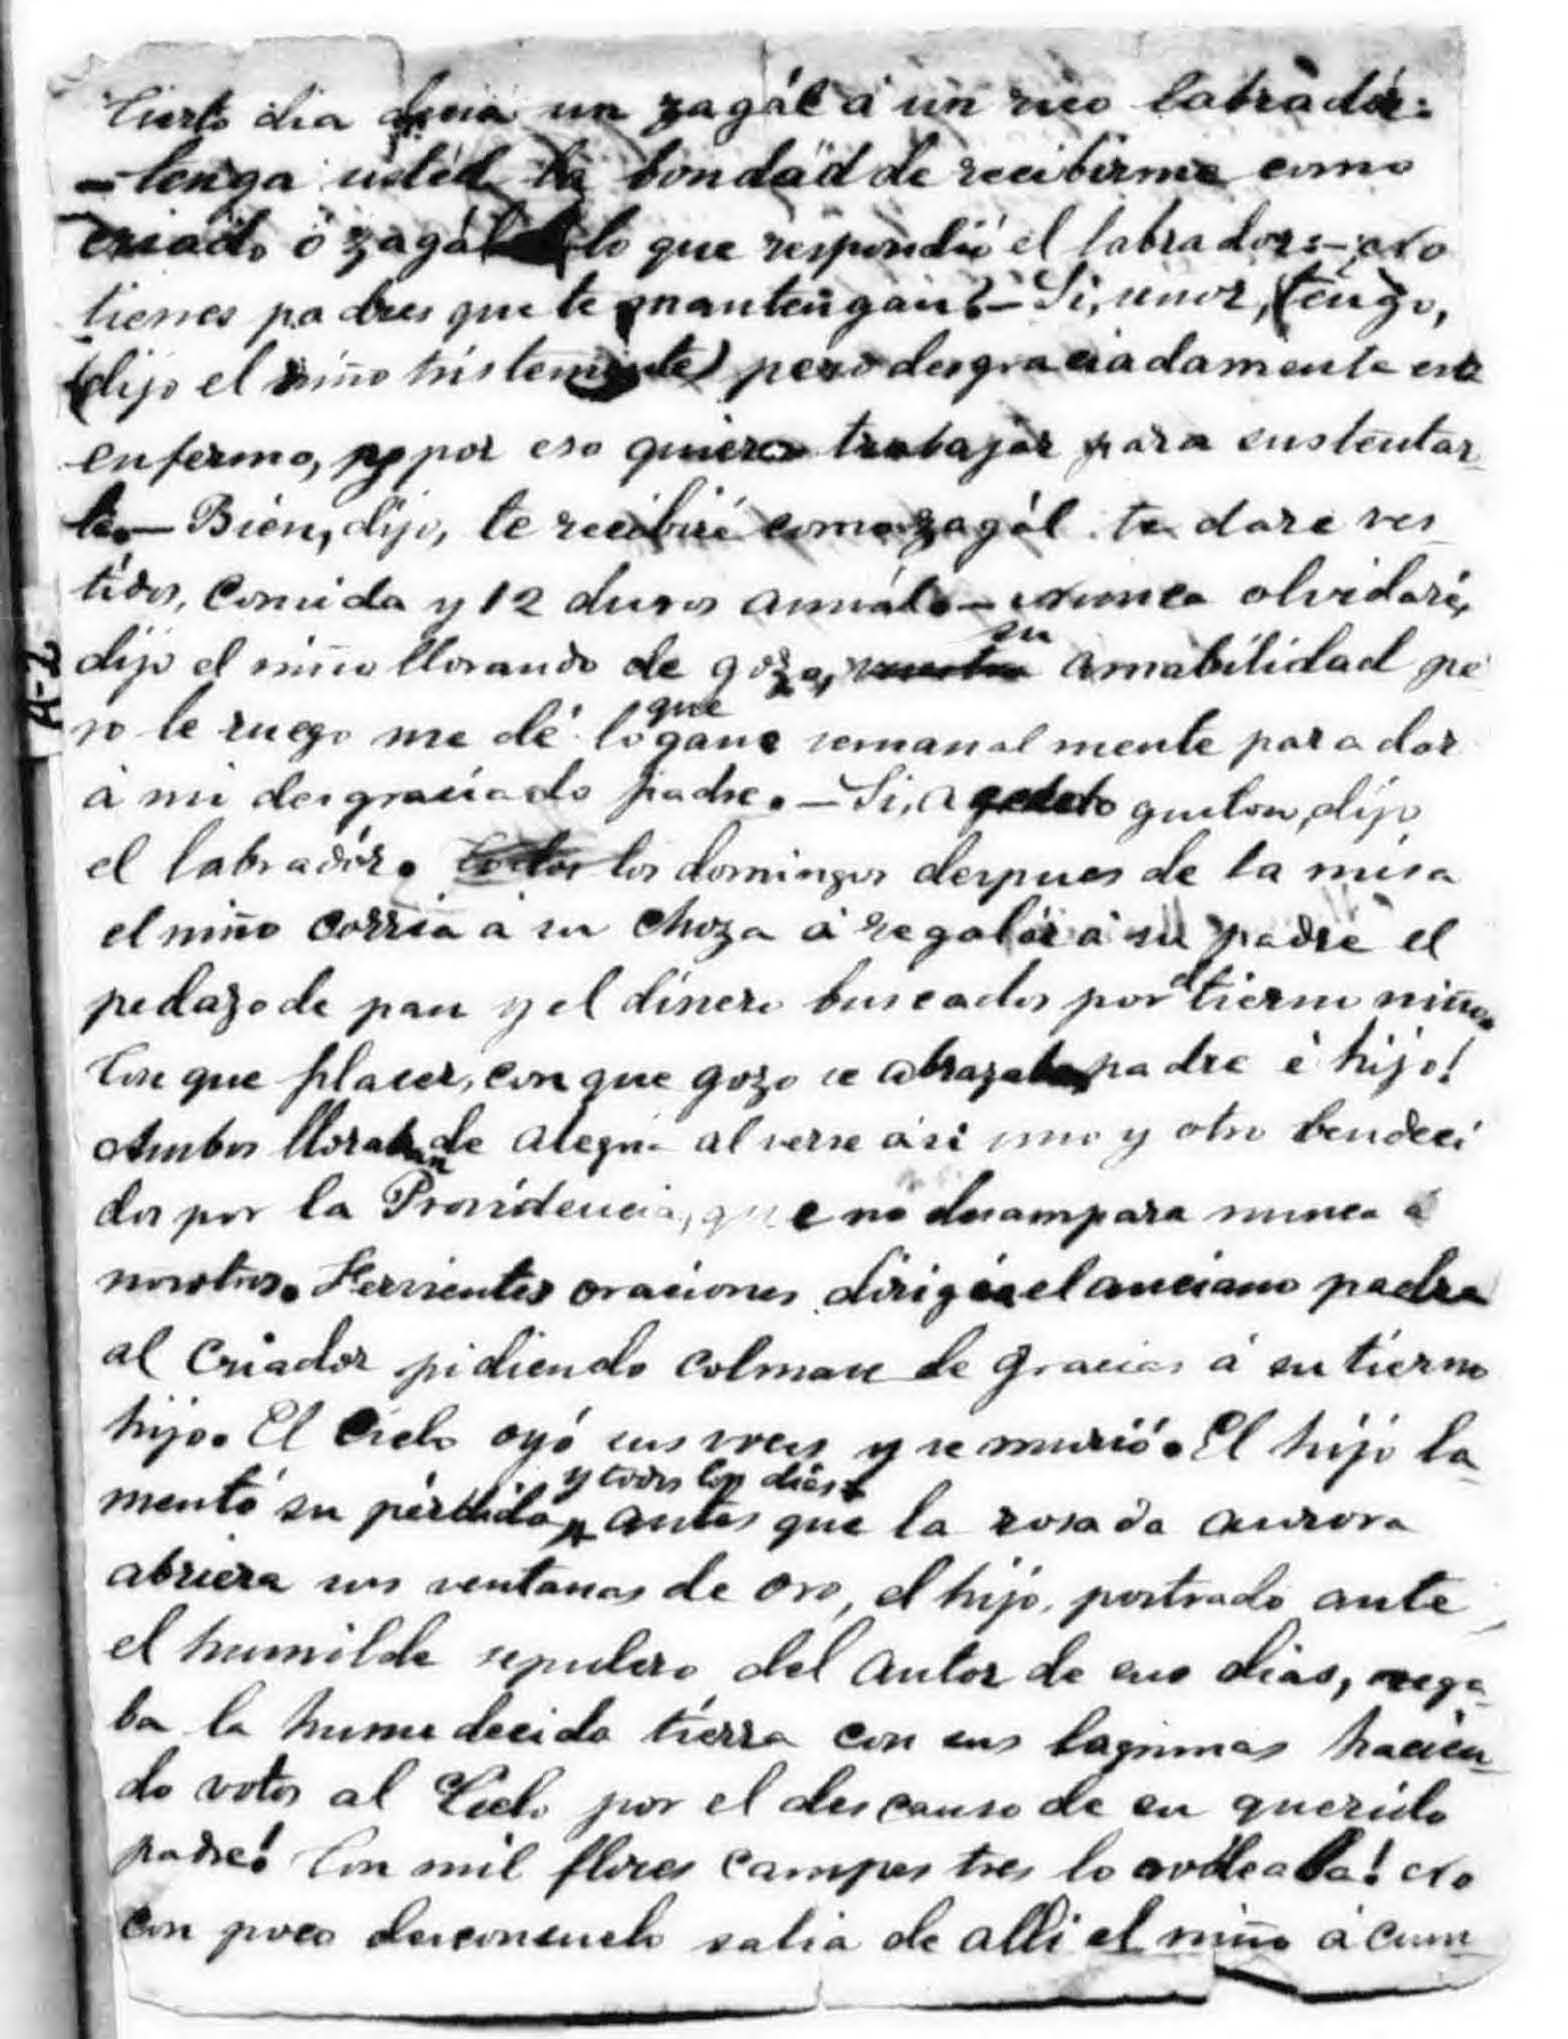 Cierto dia decia un zagál á un rico labradór:
– tenga ustéd la bondad de recibirme como
criado ó zagál lo que respondió el labrador: – ¿No
tienes padres que te mantengan? – Si, senor, tengo,
(dijo el niño tristemente) pero desgraciadamente está
enfermo, y por eso quiero trabajar para sustentar-
le. – Bien, dijo, te recibiré como zagál te dare ves-
tidos, comida y 12 duros anuál. – Nunca olvidaré,
dijo el niño llorando de gozo, su amabilidad pe
ro le ruego me dé lo que gane semanalmente para dar
á mi desgraciado padre. – Si, a gusto, dijo
el labradór. Todos los domingos despues de la misa
el niño corria á su choza á regalár á su padre el
pedazo de pan y el dinero buscados por el tierno niño.
Con que placer, con que gozo se abrazaban padre é hijo!
Ambos lloraban de alegria al verse asi uno y otro bendeci
dos por la Providencia, que no desampara nunca á
nosotros. Fervientes oraciones dirigia el anciano padre
al Criador pidiendo colmase de gracias á su tierno
hijo. El Cielo oyó sus voces y se murió. El hijo la-
mentó su pérdida y todos los dias antes que la rosada aurora
abriera sus ventanas de oro, el hijo, postrado ante
el humilde sepulcro del autor de sus dias, rega-
ba la humedecida tierra con sus lagrimas hacien-
do votos al Cielo por el descanso de su querido
padre! Con mil flores campestres lo rodeaba! No
con poco desconsuelo salia de alli el niño á cum-
A-2